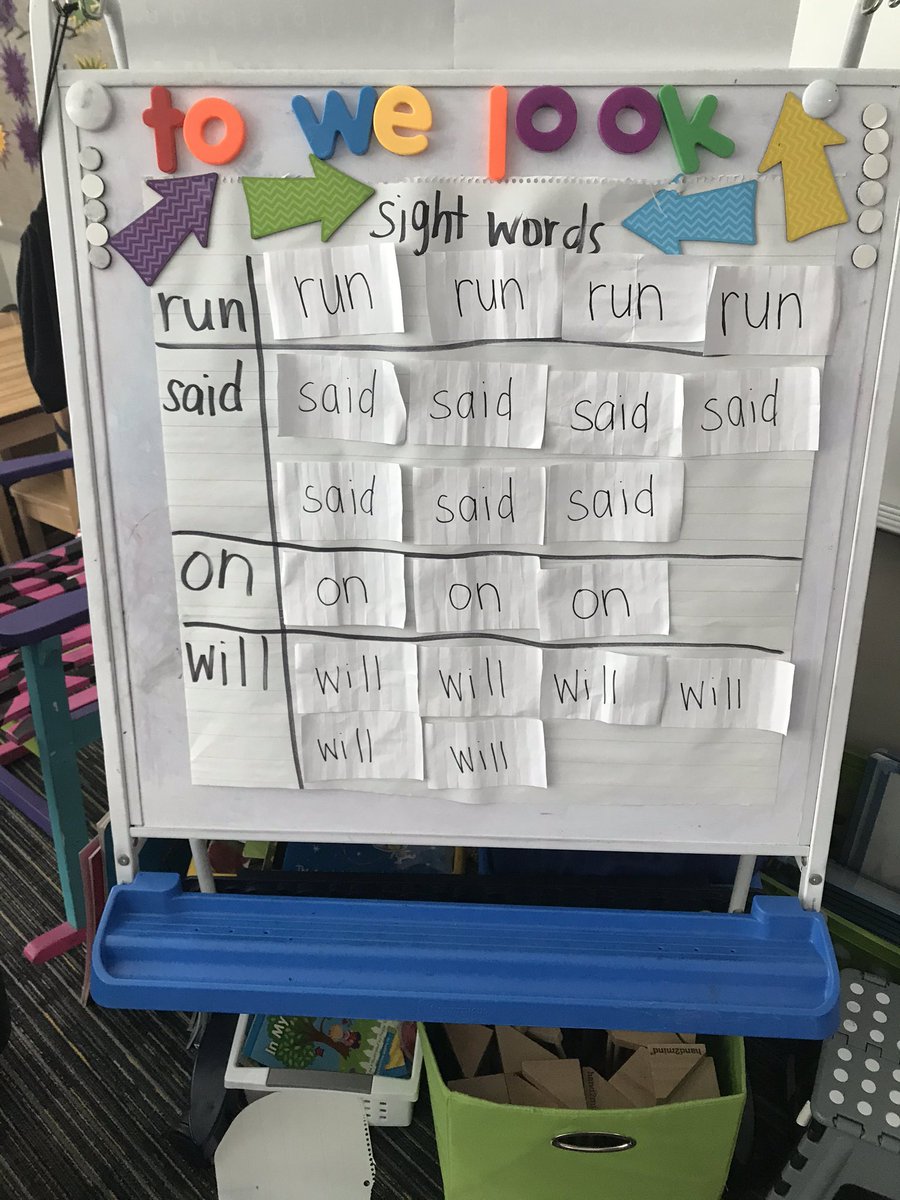 to we look
sight words
run run run run run
said said said said said
said said said
on on on on
will will will will will
will will
In My
hand2mind